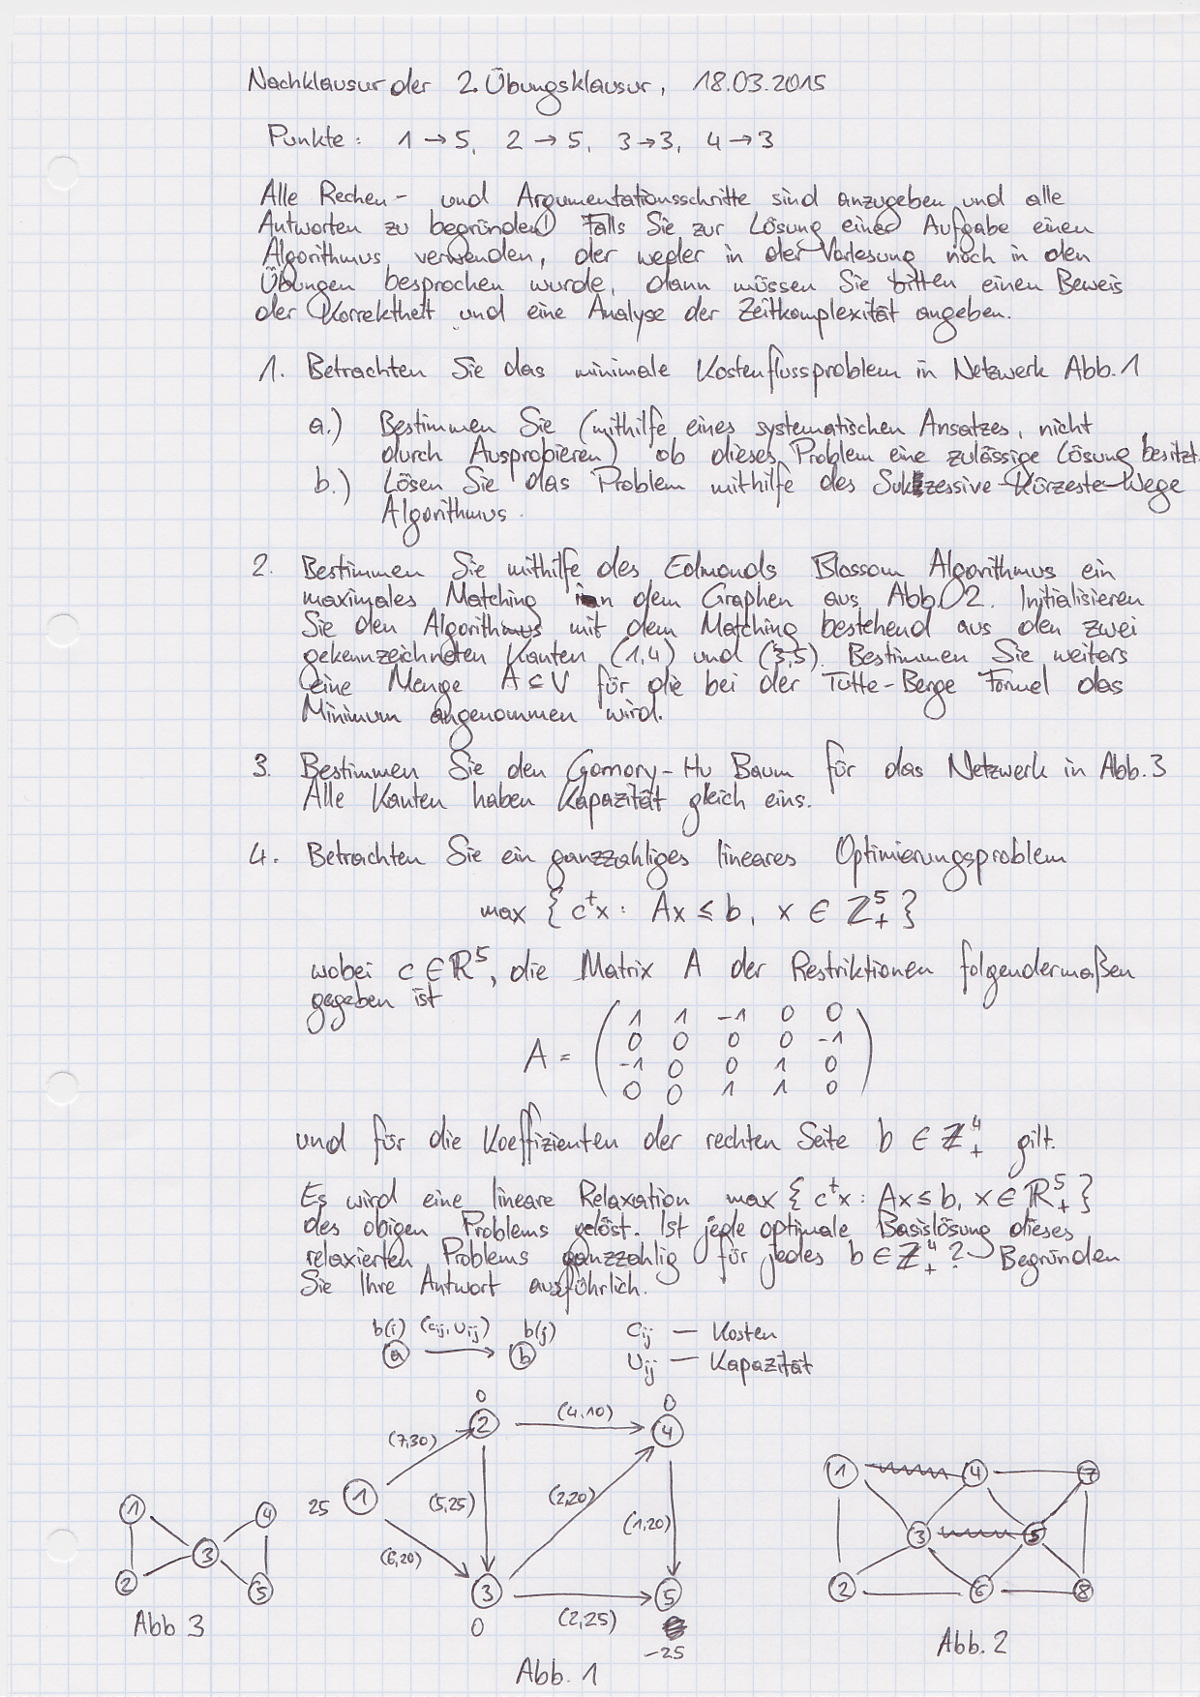 Nachklausur der 2. Übungsklausur, 18.03.2015
Punkte: 1 → 5, 2 → 5, 3 → 3, 4 → 3
Alle Rechen- und Argumentationsschritte sind anzugeben und alle
Antworten zu begründen! Falls Sie zur Lösung einer Aufgabe einen
Algorithmus verwenden, der weder in der Vorlesung noch in den
Übungen besprochen wurde, dann müssen Sie bitten einen Beweis
der Korrektheit und eine Analyse der Zeitkomplexität angeben.
1. Betrachten Sie das minimale Kostenflussproblem in Netzwerk Abb. 1
a.) Bestimmen Sie (mithilfe eines systematischen Ansatzes, nicht
durch Ausprobieren) ob dieses Problem eine zulässige Lösung besitzt.
b.) Lösen Sie das Problem mithilfe des Sukzessive-Kürzeste-Wege
Algorithmus.
2. Bestimmen Sie mithilfe des Edmonds Blossom Algorithmus ein
maximales Matching in dem Graphen aus Abb. 2. Initialisieren
Sie den Algorithmus mit dem Matching bestehend aus den zwei
gekennzeichneten Kanten (1,4) und (3,5). Bestimmen Sie weiters
eine Menge A ⊆ V für die bei der Tutte-Berge Formel das
Minimum angenommen wird.
3. Bestimmen Sie den Gomory-Hu Baum für das Netzwerk in Abb. 3
Alle Kanten haben Kapazität gleich eins.
4. Betrachten Sie ein ganzzahliges lineares Optimierungsproblem
max { cᵗx : Ax ≤ b, x ∈ ℤ⁵₊ }
wobei c ∈ ℝ⁵, die Matrix A der Restriktionen folgendermaßen
gegeben ist
1 1 -1 0 0
0 0 0 0 -1
A =
-1 0 0 1 0
0 0 1 1 0
und für die Koeffizienten der rechten Seite b ∈ ℤ⁴₊ gilt.
Es wird eine lineare Relaxation max { cᵗx : Ax ≤ b, x ∈ ℝ⁵₊ }
des obigen Problems gelöst. Ist jede optimale Basislösung dieses
relaxierten Problems ganzzahlig für jedes b ∈ ℤ⁴₊ ? Begründen
Sie Ihre Antwort ausführlich.
b(i) (cij, uij) b(j) cij — Kosten
a b uij — Kapazität
0 0
2 (4,10) 4
(7,30)
25 1 (5,25) (2,20) (1,20)
(6,20)
3 (2,25) 5
0 -25
Abb. 1
1 4
3
2 5
Abb 3
1 4 7
3 5
2 6 8
Abb. 2